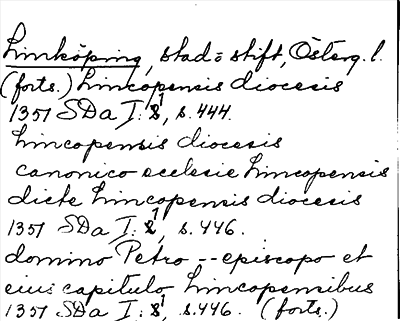 Linköping, stad o stift, Österg. l.
(forts.) Lincopensis diocesis
1351 SDa I: 1, s. 444.
Lincopensis diocesis
canonico ecclesie Lincopensis
dicte Lincopensis diocesis
1351 SDa I: 1, s. 446.
domino Petro -- episcopo et
eius capitulo Lincopensibus
1351 SDa I: 1, s. 446. (forts.)